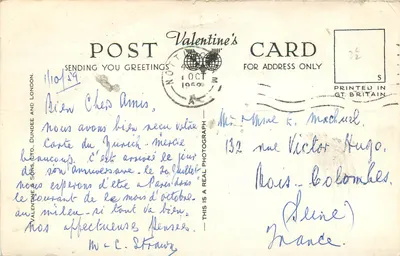 Valentine's
POST CARD
SENDING YOU GREETINGS
FOR ADDRESS ONLY
S
PRINTED IN
GT. BRITAIN
VALENTINE & SONS, LTD., DUNDEE AND LONDON.
THIS IS A REAL PHOTOGRAPH
1 OCT
A
Bien Chers Amis.
nous avons bien reçu votre
carte du Zurich - mercie
beaucoup. C'est arrivé le jour
de son anniversaire. le 20 Juillet
nous esperons d'être a Paris dans
le courant de la mois d'octobre.
au milieu - si tout va bien.
nos affectueuses Pensées.
Mr & Mme
132 rue Victor Hugo.
Bois-Colombes.
(Seine)
France.